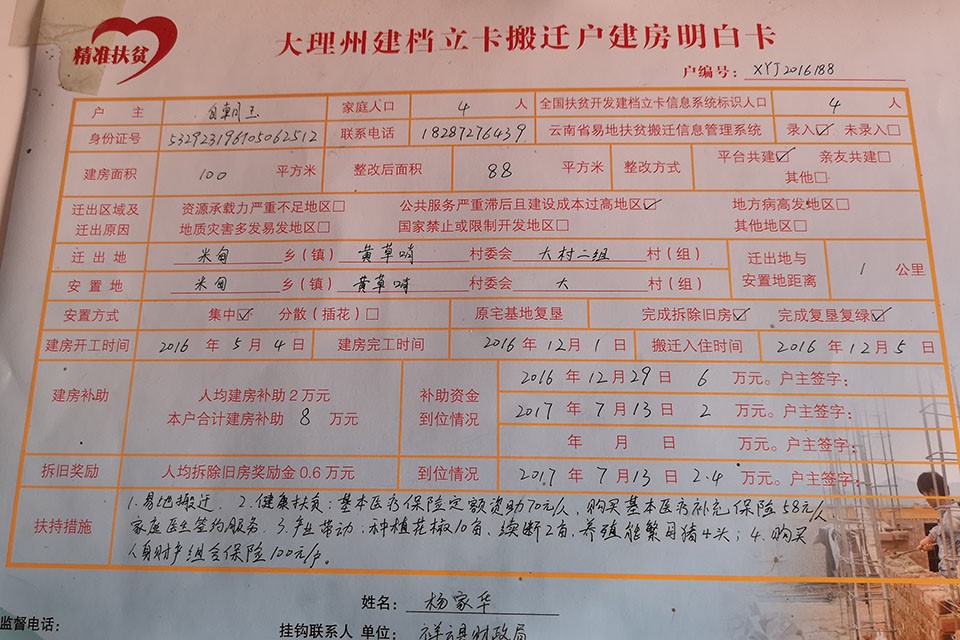 精准扶贫
大理州建档立卡搬迁户建房明白卡
户编号：XYJ2016188
户主 自朝玉 家庭人口 4 人 全国扶贫开发建档立卡信息系统标识人口 4 人
身份证号 532923196105062512 联系电话 18287276439 云南省易地扶贫搬迁信息管理系统 录入☑ 未录入□
建房面积 100 平方米 整改后面积 88 平方米 整改方式 平台共建☑ 亲友共建□
其他□
迁出区域及 资源承载力严重不足地区□ 公共服务严重滞后且建设成本过高地区☑ 地方病高发地区□
迁出原因 地质灾害多发易发地区□ 国家禁止或限制开发地区□ 其他地区□
迁出地 米甸 乡（镇） 黄草哨 村委会 大村二组 村（组） 迁出地与
安置地距离 1 公里
安置地 米甸 乡（镇） 黄草哨 村委会 大 村（组）
安置方式 集中☑ 分散（插花）□ 原宅基地复垦 完成拆除旧房☑ 完成复垦复绿☑
建房开工时间 2016 年 5 月 4 日 建房完工时间 2016 年 12 月 1 日 搬迁入住时间 2016 年 12 月 5 日
建房补助 人均建房补助2万元
本户合计建房补助 8 万元
补助资金
到位情况
2016 年 12 月 29 日 6 万元。户主签字：
2017 年 7 月 13 日 2 万元。户主签字：
年 月 日 万元。户主签字：
拆旧奖励 人均拆除旧房奖励金0.6万元 到位情况 2017 年 7 月 13 日 2.4 万元。户主签字：
扶持措施
1.易地搬迁。2.健康扶贫：基本医疗保险定额资助70元/人、购买基本医疗补充保险58元/人、
家庭医生签约服务。3.产业带动：种植花椒10亩、续断2亩，养殖能繁母猪4头；4.购买
人身财产组合保险100元/户。
姓名：杨家华
监督电话：
挂钩联系人 单位：祥云县财政局